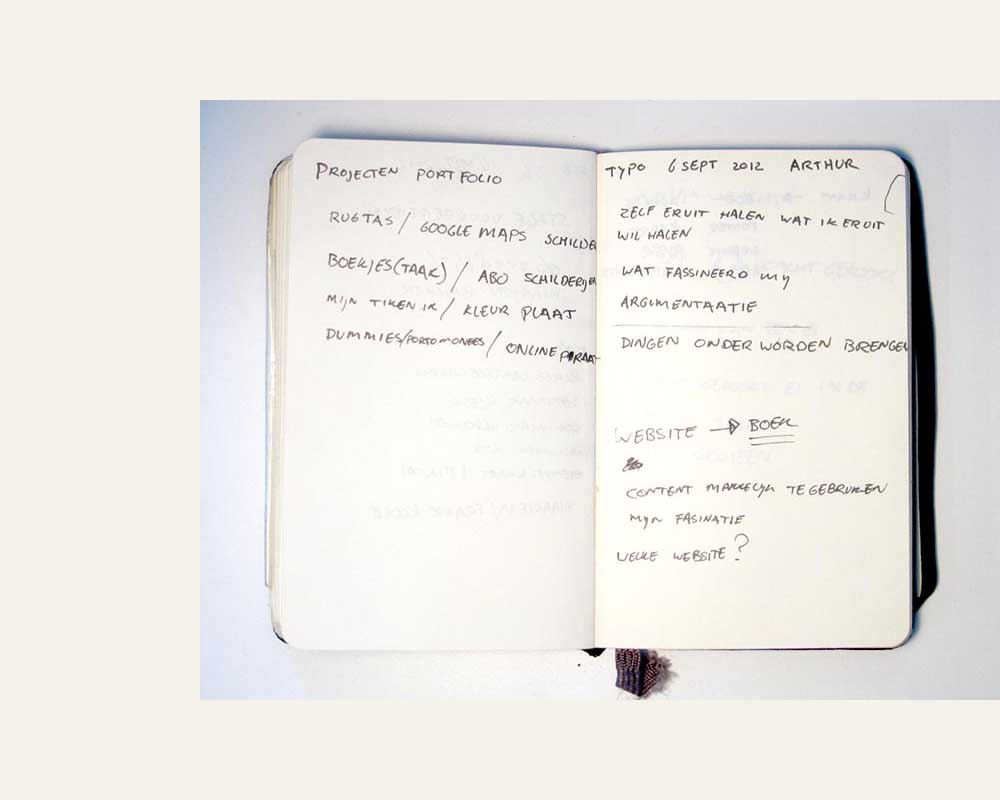 PROJECTEN PORTFOLIO
RUGTAS / GOOGLE MAPS SCHILDE
BOEKJES (TAAK) / ABO SCHILDERIJEN
MIJN TIKEN IK / KLEUR PLAAT
DUMMIES/PORTOMONEES / ONLINE PARAAT
TYPO 6 SEPT 2012 ARTHUR
ZELF ERUIT HALEN WAT IK ERUIT
WIL HALEN
WAT FASSINEERD MY
ARGUMENTAATIE
DINGEN ONDER WORDEN BRENGEN
WEBSITE → BOEK
CONTENT MAKKELYK TE GEBRUIKEN
MYN FASINATIE
WELKE WEBSITE?